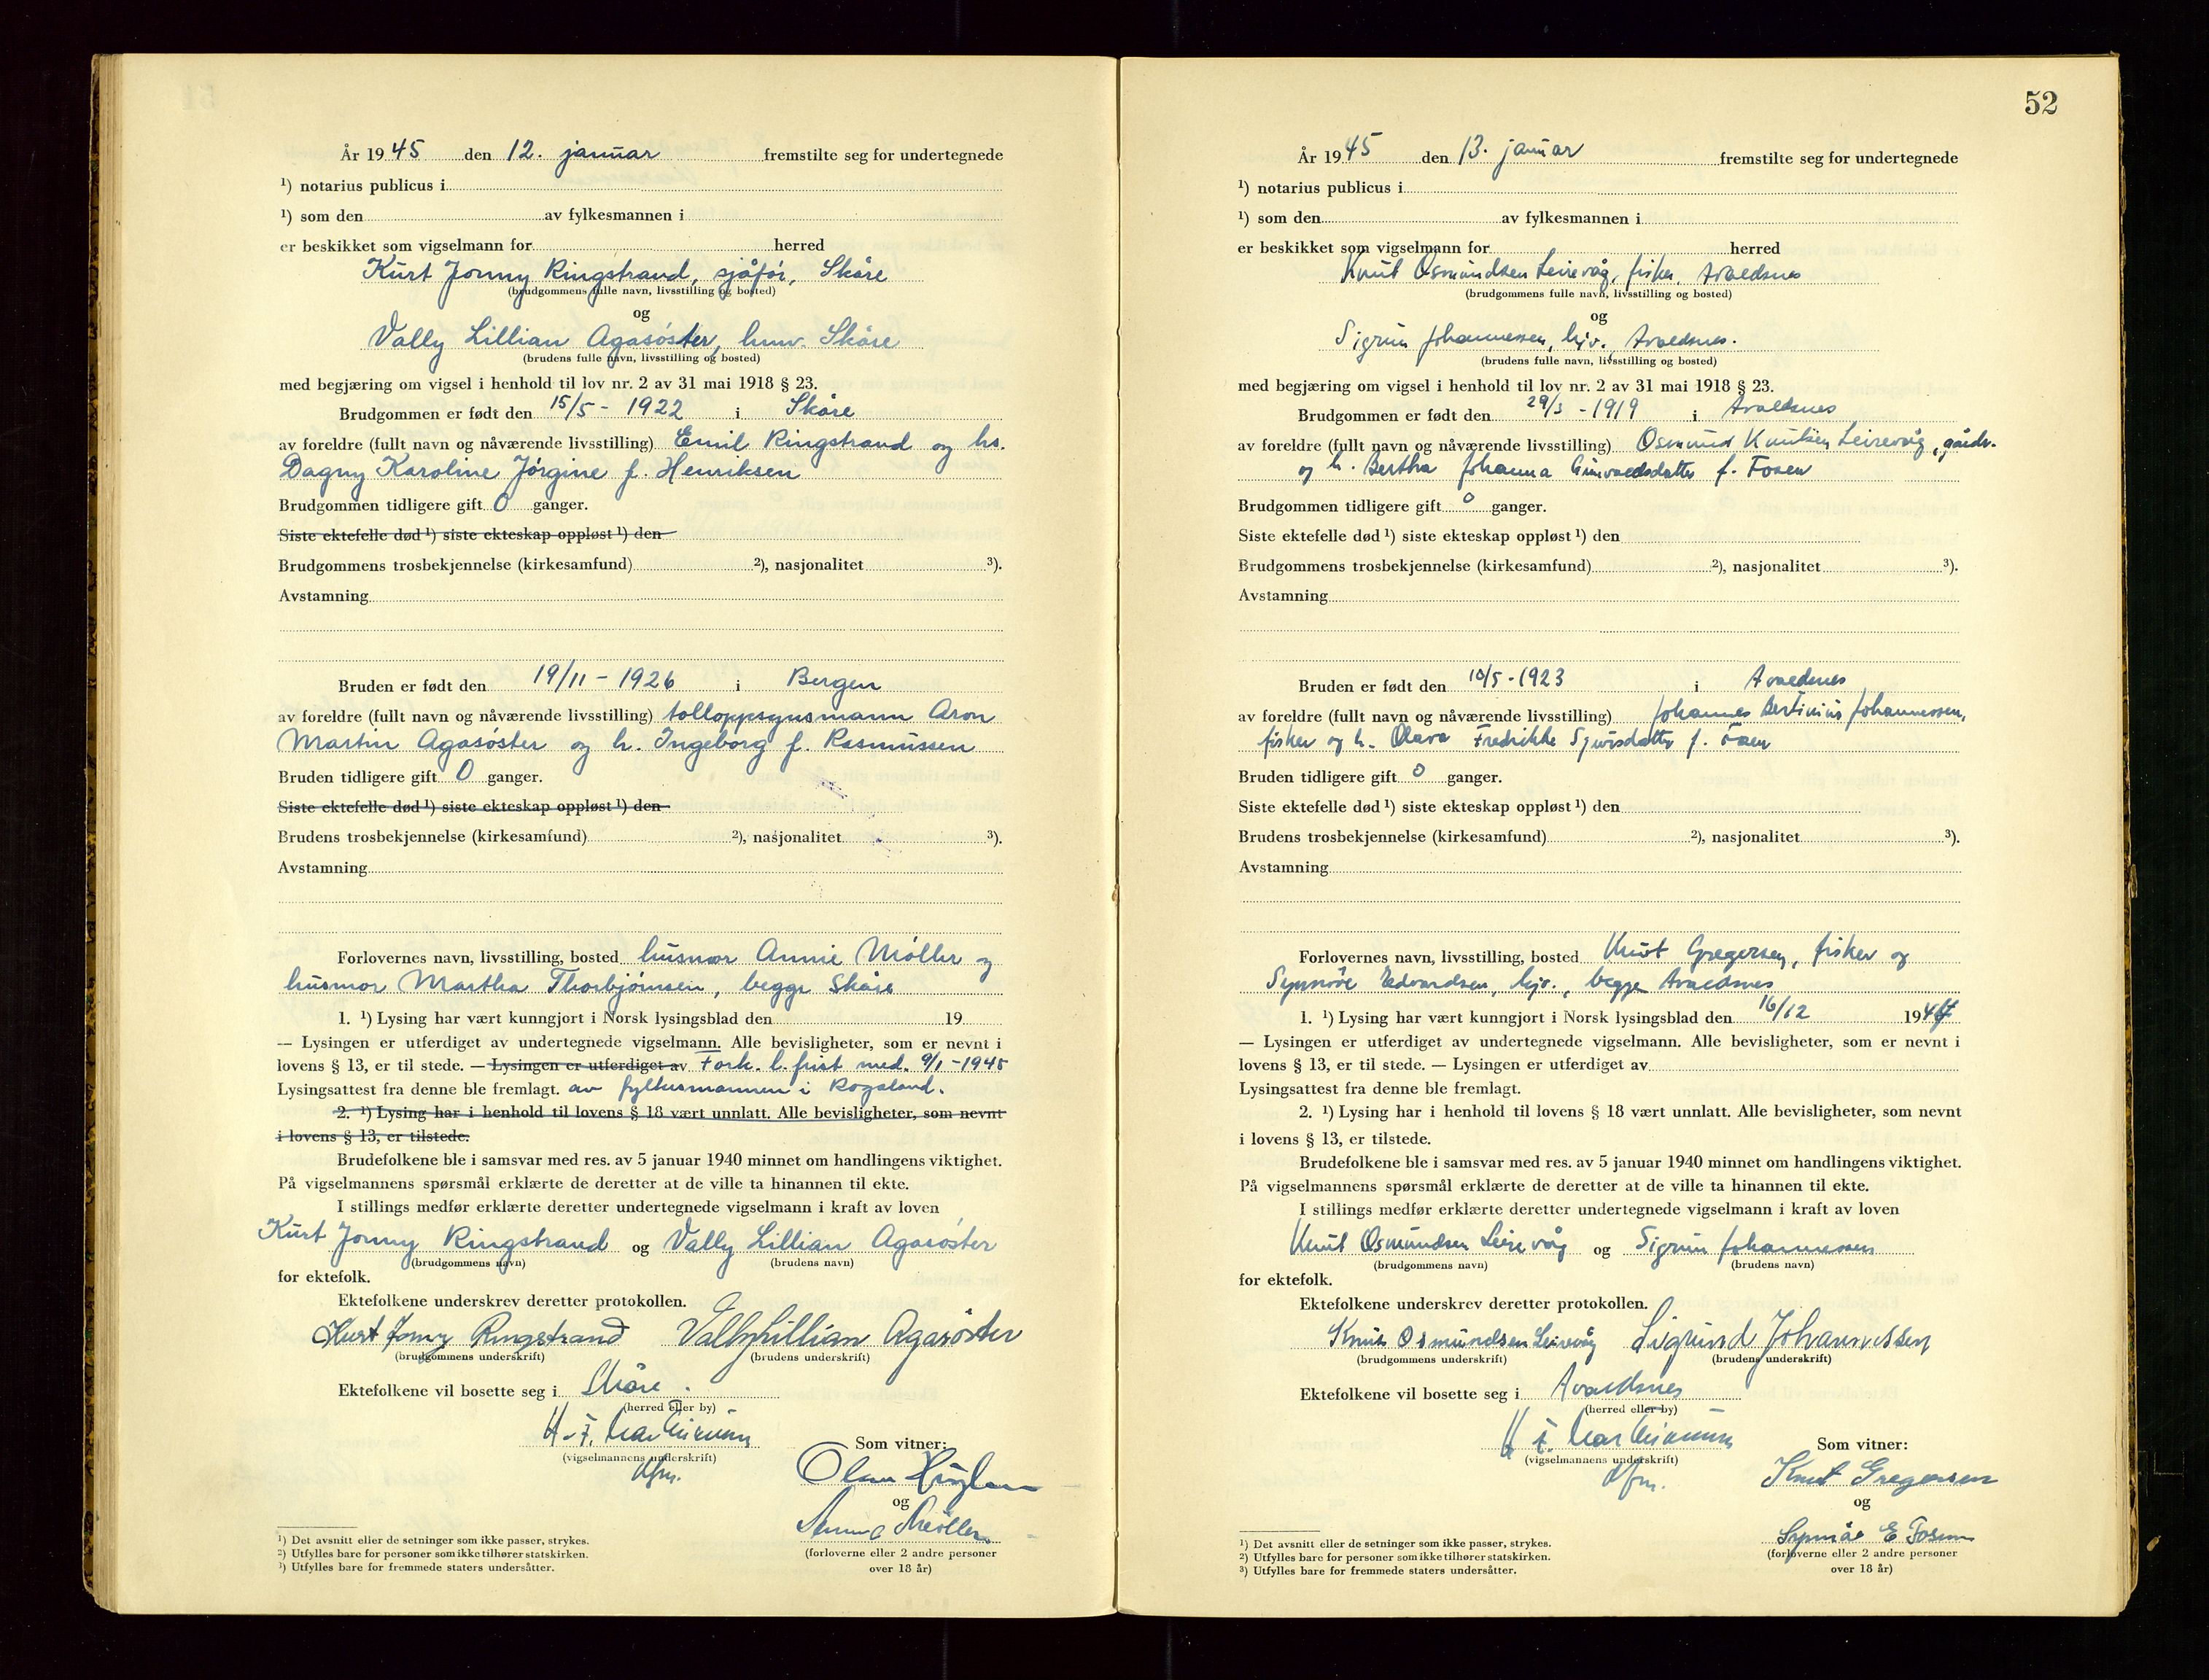 År 1945 den 12. januar fremstilte seg for undertegnede
¹) notarius publicus i
¹) som den av fylkesmannen i
er beskikket som vigselmann for herred
Kurt Jonny Ringstrand, sjåfør, Skåre
(brudgommens fulle navn, livsstilling og bosted)
og
Vally Lillian Agasøster, husv. Skåre
(brudens fulle navn, livsstilling og bosted)
med begjæring om vigsel i henhold til lov nr. 2 av 31 mai 1918 § 23.
Brudgommen er født den 15/5 - 1922 i Skåre
av foreldre (fullt navn og nåværende livsstilling) Emil Ringstrand og hs.
Dagny Karoline Jørgine f. Henriksen
Brudgommen tidligere gift 0 ganger.
Siste ektefelle død ¹) siste ekteskap oppløst ¹) den
Brudgommens trosbekjennelse (kirkesamfund) ²), nasjonalitet ³).
Avstamning
Bruden er født den 19/11 - 1926 i Bergen
av foreldre (fullt navn og nåværende livsstilling) tolloppsynsmann Aron
Martin Agasøster og h. Ingeborg f. Rasmussen
Bruden tidligere gift 0 ganger.
Siste ektefelle død ¹) siste ekteskap oppløst ¹) den
Brudens trosbekjennelse (kirkesamfund) ²), nasjonalitet ³).
Avstamning
Forlovernes navn, livsstilling, bosted husmor Annie Møller og
husmor Martha Thorbjørnsen, begge Skåre
1. ¹) Lysing har vært kunngjort i Norsk lysingsblad den 19
— Lysingen er utferdiget av undertegnede vigselmann. Alle bevisligheter, som er nevnt i
lovens § 13, er til stede. — Lysingen er utferdiget av Fork. l. frist med. 9/1 - 1945
Lysingsattest fra denne ble fremlagt. av fylkesmannen i Rogaland.
2. ¹) Lysing har i henhold til lovens § 18 vært unnlatt. Alle bevisligheter, som nevnt
i lovens § 13, er tilstede.
Brudefolkene ble i samsvar med res. av 5 januar 1940 minnet om handlingens viktighet.
På vigselmannens spørsmål erklærte de deretter at de ville ta hinannen til ekte.
I stillings medfør erklærte deretter undertegnede vigselmann i kraft av loven
Kurt Jonny Ringstrand og Vally Lillian Agasøster
(brudgommens navn) (brudens navn)
for ektefolk.
Ektefolkene underskrev deretter protokollen.
Kurt Jonny Ringstrand Vally Lillian Agasøster
(brudgommens underskrift) (brudens underskrift)
Ektefolkene vil bosette seg i Skåre.
(herred eller by)
(vigselmannens underskrift)
Som vitner:
og
Annie Møller
(forloverne eller 2 andre personer
over 18 år)
¹) Det avsnitt eller de setninger som ikke passer, strykes.
²) Utfylles bare for personer som ikke tilhører statskirken.
³) Utfylles bare for fremmede staters undersåtter.
52
År 1945 den 13. januar fremstilte seg for undertegnede
¹) notarius publicus i
¹) som den av fylkesmannen i
er beskikket som vigselmann for herred
Knut Osmundsen Leirevåg, fisker, Avaldsnes
(brudgommens fulle navn, livsstilling og bosted)
og
Sigrun Johannessen, hjv., Avaldsnes.
(brudens fulle navn, livsstilling og bosted)
med begjæring om vigsel i henhold til lov nr. 2 av 31 mai 1918 § 23.
Brudgommen er født den 29/3 - 1919 i Avaldsnes
av foreldre (fullt navn og nåværende livsstilling) Osmund Knutsen Leirevåg, gårdv.
og h. Bertha Johanna f. Fosen
Brudgommen tidligere gift 0 ganger.
Siste ektefelle død ¹) siste ekteskap oppløst ¹) den
Brudgommens trosbekjennelse (kirkesamfund) ²), nasjonalitet ³).
Avstamning
Bruden er født den 10/5 - 1923 i Avaldsnes
av foreldre (fullt navn og nåværende livsstilling) Johannes Bertinius Johannessen,
fisker og h. Olava Fredrikke Sjursdatter f. Faen
Bruden tidligere gift 0 ganger.
Siste ektefelle død ¹) siste ekteskap oppløst ¹) den
Brudens trosbekjennelse (kirkesamfund) ²), nasjonalitet ³).
Avstamning
Forlovernes navn, livsstilling, bosted Knut Gregersen, fisker og
Synnøve Edvardsen, hjv., begge Avaldsnes
1. ¹) Lysing har vært kunngjort i Norsk lysingsblad den 16/12 1944
— Lysingen er utferdiget av undertegnede vigselmann. Alle bevisligheter, som er nevnt i
lovens § 13, er til stede. — Lysingen er utferdiget av
Lysingsattest fra denne ble fremlagt.
2. ¹) Lysing har i henhold til lovens § 18 vært unnlatt. Alle bevisligheter, som nevnt
i lovens § 13, er tilstede.
Brudefolkene ble i samsvar med res. av 5 januar 1940 minnet om handlingens viktighet.
På vigselmannens spørsmål erklærte de deretter at de ville ta hinannen til ekte.
I stillings medfør erklærte deretter undertegnede vigselmann i kraft av loven
Knut Osmundsen Leirevåg og Sigrun Johannessen
(brudgommens navn) (brudens navn)
for ektefolk.
Ektefolkene underskrev deretter protokollen.
Knut Osmundsen Leirevåg Sigrund Johannessen
(brudgommens underskrift) (brudens underskrift)
Ektefolkene vil bosette seg i Avaldsnes
(herred eller by)
(vigselmannens underskrift)
Som vitner:
Knut Gregersen
og
(forloverne eller 2 andre personer
over 18 år)
¹) Det avsnitt eller de setninger som ikke passer, strykes.
²) Utfylles bare for personer som ikke tilhører statskirken.
³) Utfylles bare for fremmede staters undersåtter.